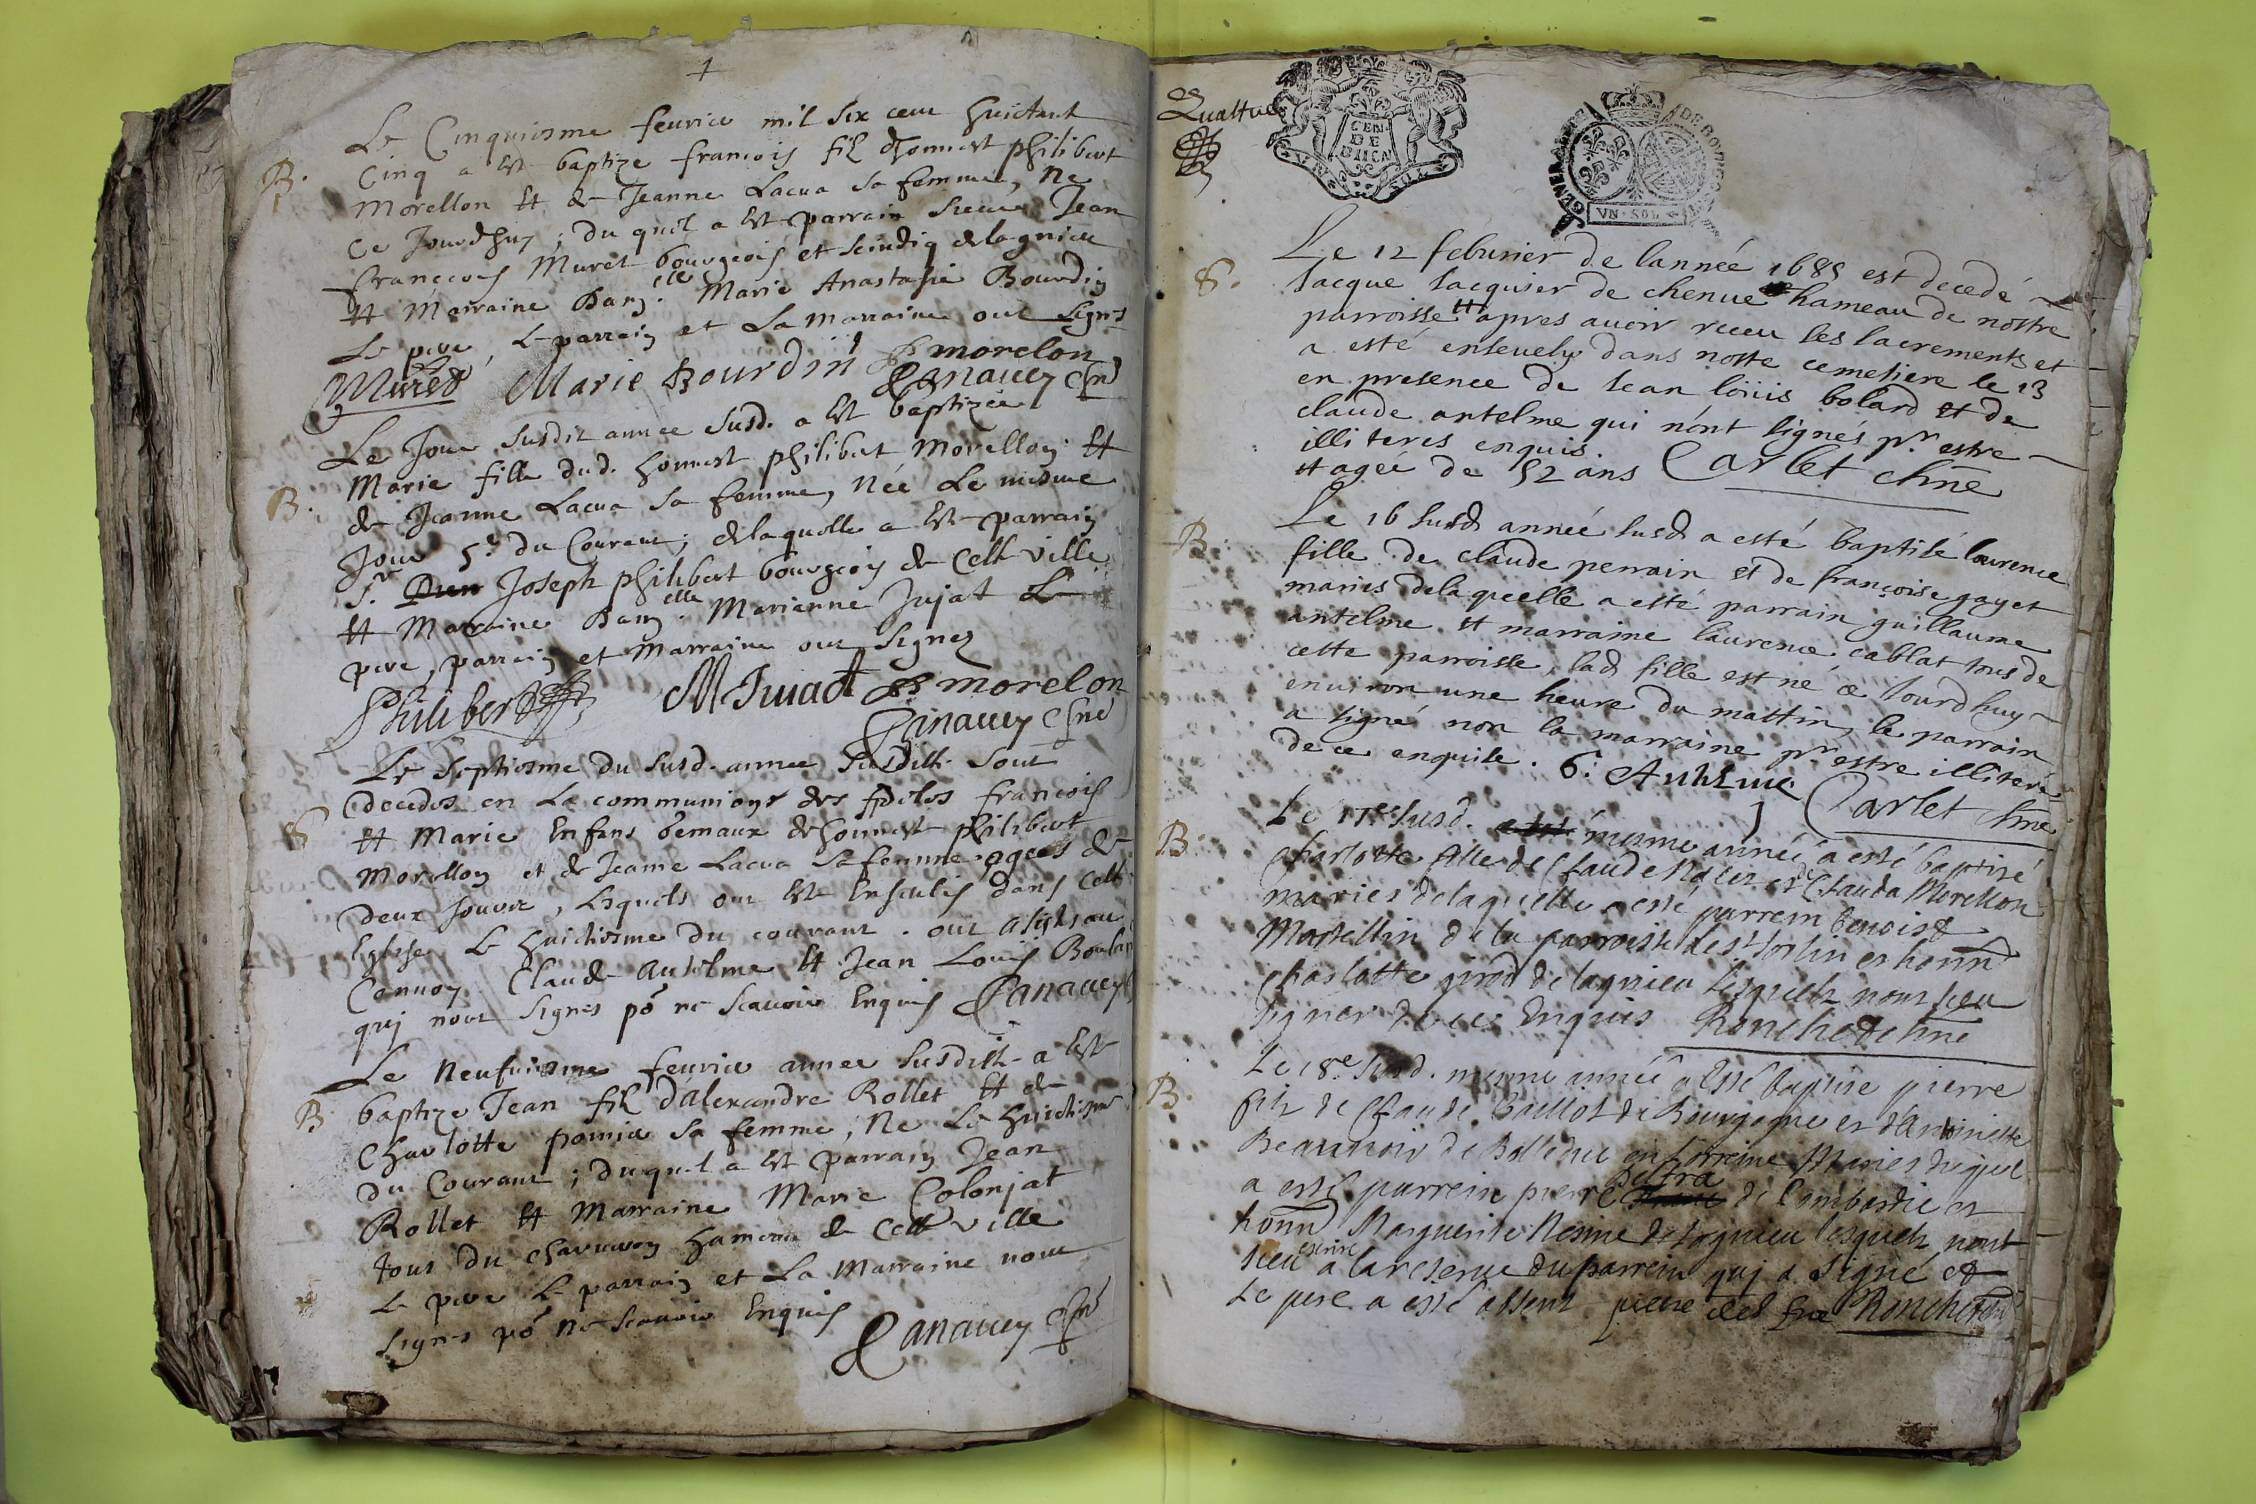 Le Cinquiesme feurier mil six cent huictant
B.
Cinq a est baptize francois filz dhonnest philibert
Morellon et de Jeanne Lacua sa femme, Ne
Ce Jourdhuy; du quel a est parrain sieur Jean
francois Muret bourgeois et scindiq de lagnieu
et Marraine Dam.elle Marie Anastasie Bourdin
Le pere, Le parrain et La marraine ont signes
Muret Marie Bourdin Ph morelon
Canauey Chne
Le Jour susdit annee susd. a est baptizée
B.
Marie fille dud. honnest philibert Morellon et
de Jeanne Lacua sa femme, Née Le mesme
Jour 5e du Courant; de laquelle a est parrain
sr. Joseph philibert bourgeois de Cette ville
et Marraine Dam.elle Marianne Jujat Le
pere, parrain et Marraine ont signez
Philibert M Juiat Ph morelon
Canauey Chne
Le septiesme du susd. annee susditte sont
decedes en La communion des fideles francois
S
et Marie Enfans Gemaux dhonnest philibert
Morellon et de Jeanne Lacua sa femme agees de
deux Jours, lesquels ont este Enseuelis dans Cette
Eglise Le huictiesme du courant. ont assistes au
Conuoy Claude Antelme et Jean Louis Boular
quj nont signes po ne scauoir Enquis Canauey
Le Neufuiesme feurier annee susditte a est
B
baptize Jean filz dalexandre Rollet et de
Charlotte pernia sa femme, Ne Le huictiesme
du Courant; du quel a est parrain Jean
Rollet et Marraine Marie Colonjat
tous du charueron hameau de Cette ville
Le pere Le parrain et La Marraine nont
signes po ne scauoir Enquis
Canauey Chne
Quattre
GEN
DE
DIION
VN SOL
VN·SOL
Le 12 feburier de lannée 1685 est decedé
S.
Jacque Jacquier de chenue hameau de nostre
parroisse et apres auoir receu les sacrements et
a esté enseuely dans notre cemetiere le 13
en presence de Jean loüis bolard et de
claude antelme qui nónt signés pr. estre
illiteres enquis.
et ageé de 52 ans Carlet chne
Le 16 susd année susd a esté baptisé laurence
B.
fille de claude perrain et de françoise gayet
mariés de laqueelle a esté parrain guillaume
antelme et marraine laurence cablat tous de
cette parroisse, lad fille est né ce iourdhuy
enuiron une heure du mattin, le parrain
a signé non la marraine pr. estre illiteré
de ce enquise. G. Anthelme
Carlet chne
Le 17e susd. mesme année a esté baptisé
B
Charlotte fille de Claude et de Clauda Morellon
mariés de laquelle a esté parrein benoist
Martellin de la parroisse de st Sorlin et honn
charlotte girod de lagnieu lesquels nont sceu
signer de ce Enquis Roncheton chne
Le 18e susd. mesme année a esté baptise pierre
B.
filz de Claude Caillot de Bourgogne et dAntoinette
Beaunoir de en lorreine Mariés duquel
a esté parrein pierre delfra de lombardie et
honn Marguerite de lagnieu lesquels nont
sceu escrire a la reserue du parrein quj a signé et
Le pere a esté absent pierre del fra Roncheton